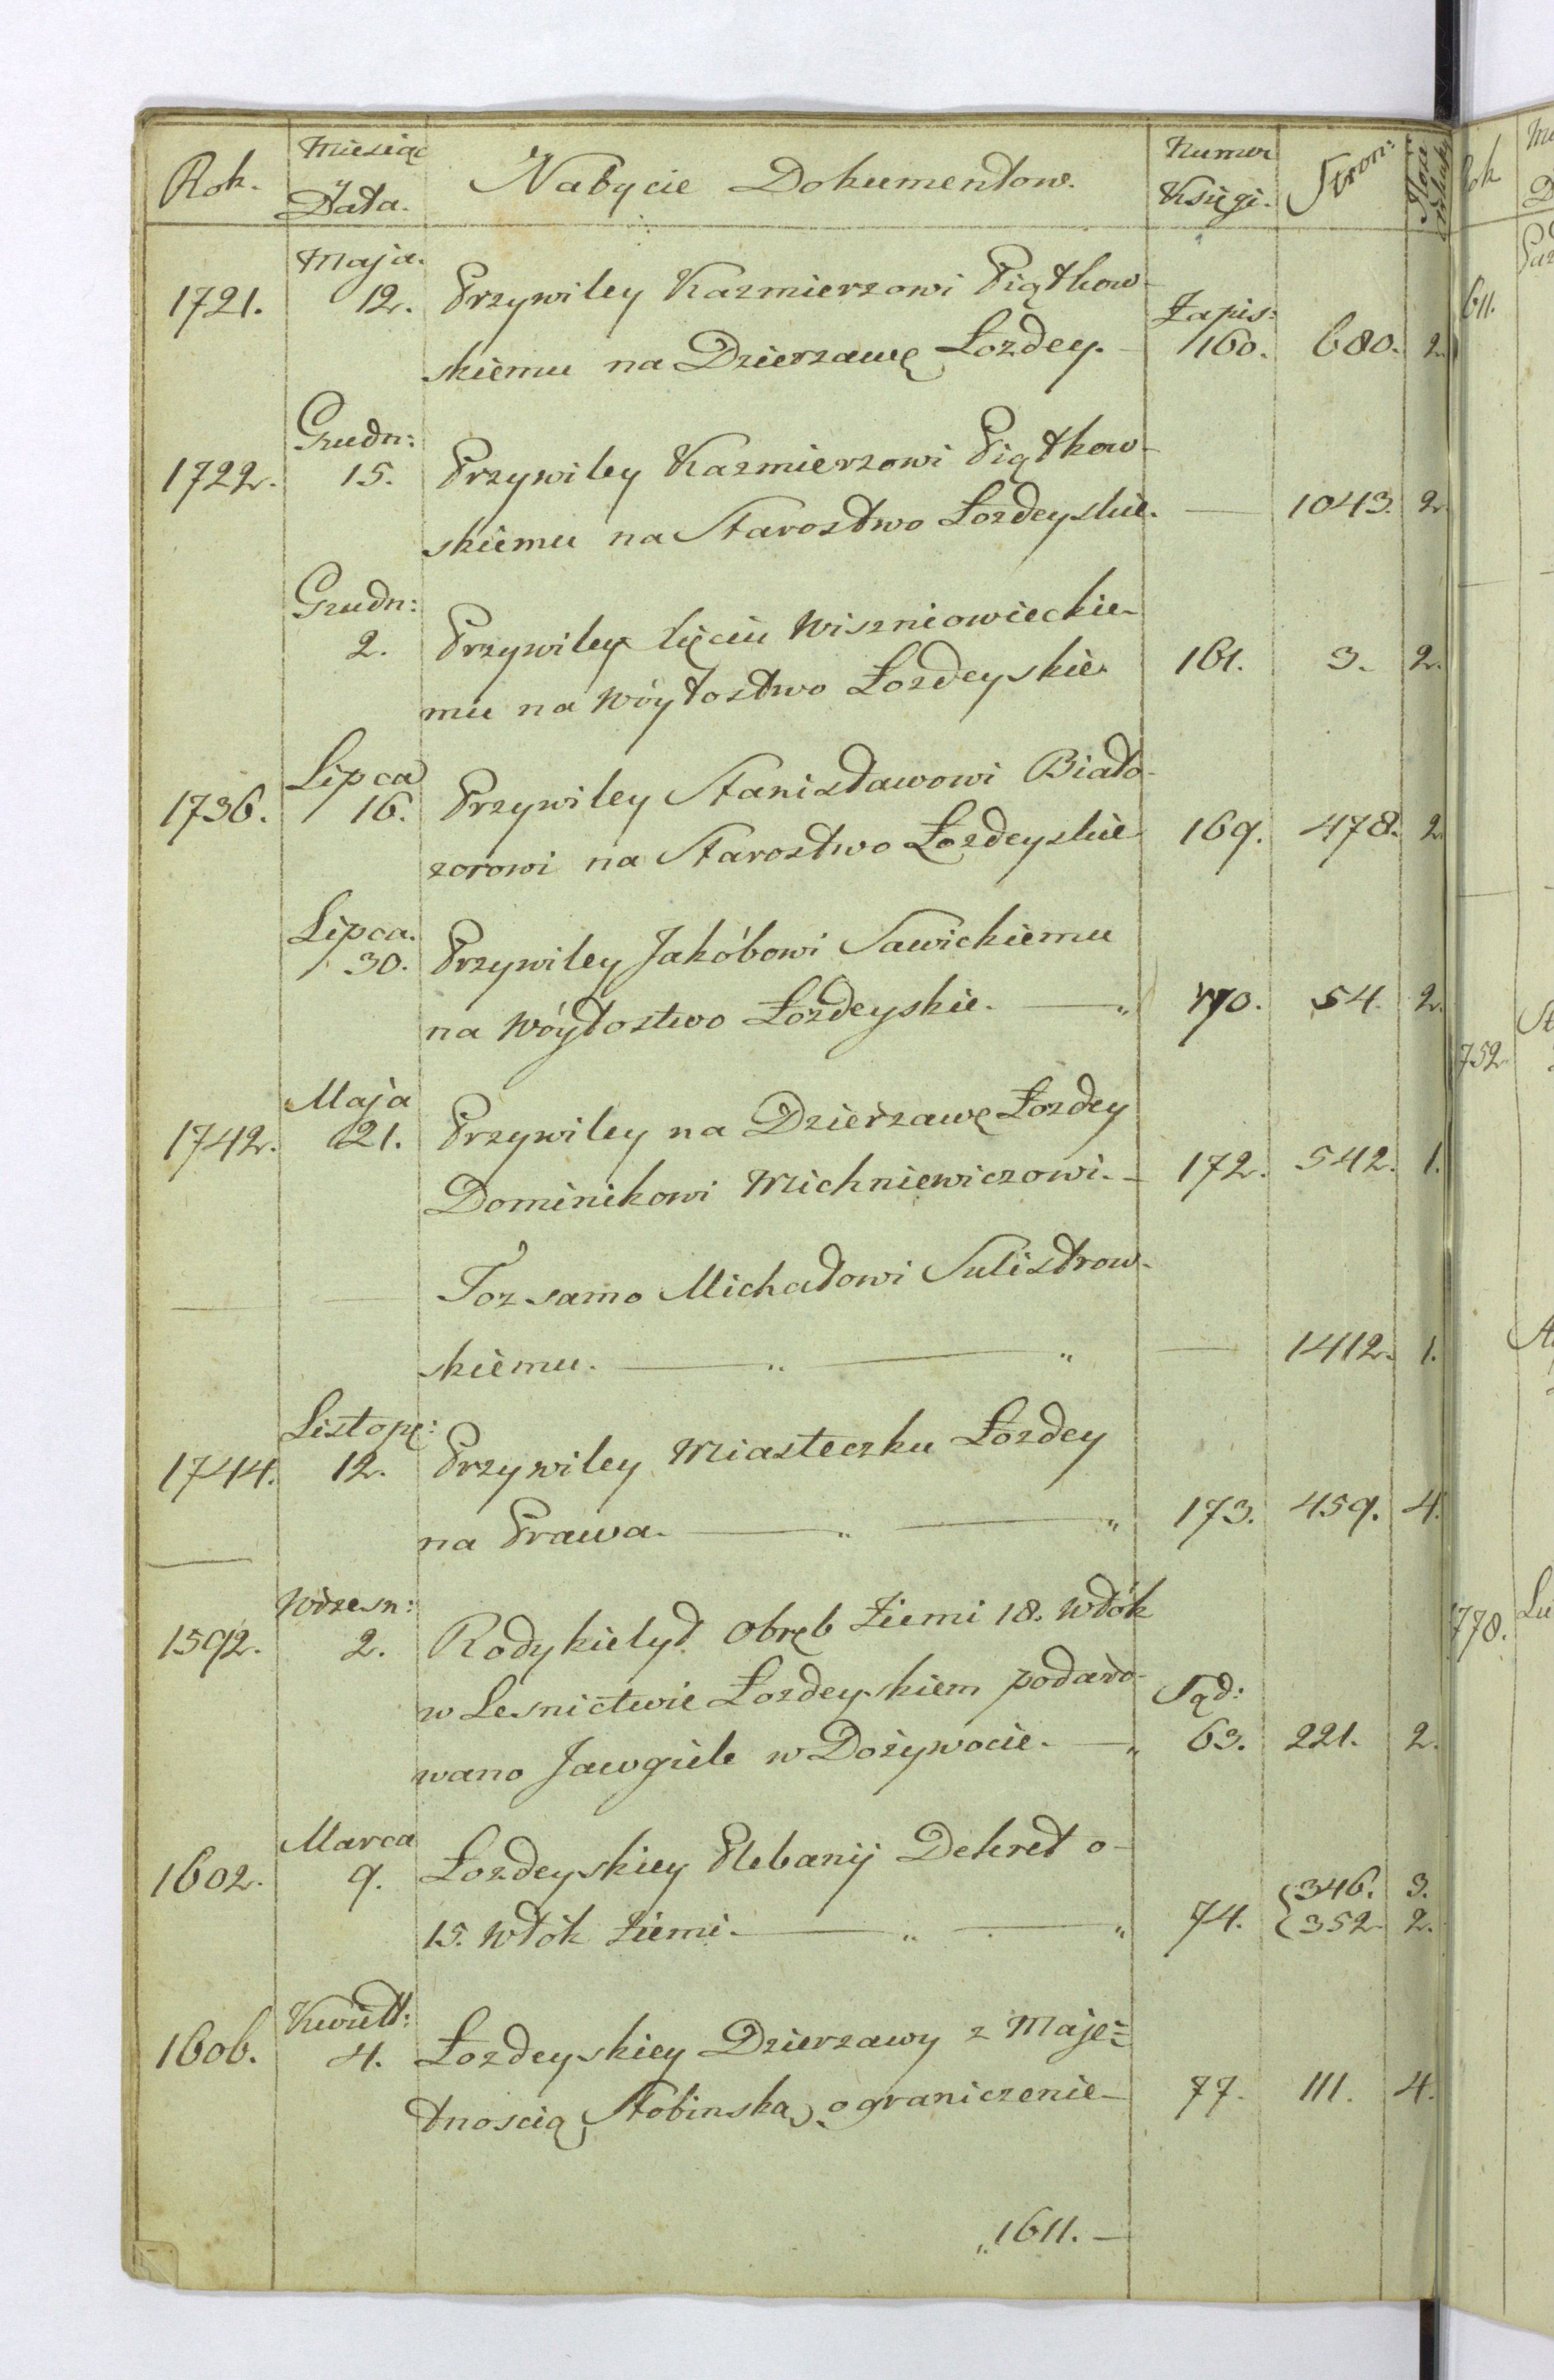 Rok. Miesiąc y Data. Nabycie Dokumentow. Numer Księgi. Stron:
Maja.
1721. 12. Przywiley Kazmierzowi Piątkow-
Zapis:
skiemu na Dzierzawę Łozdey. 160. 680. 2.
Grudn:
1722. 15. Przywiley Kazmierzowi Piątkow-
skiemu na Starostwo Łozdeyskie. — 1043. 2.
Grudn:
2. Przywiley Xięciu Wiszniowieckie-
mu na Wóytostwo Łozdeyskie 161. 3. 2.
Lipca
1736. 16. Przywiley Stanisławowi Biało-
zorowi na Starostwo Łozdeyskie 169. 478. 2
Lipca.
30. Przywiley Jakóbowi Sawickiemu
na Wóytostwo Łozdeyskie. — „ 170. 54. 2.
Maja
1742. 21. Przywiley na Dzierżawę Łozdey
Dominikowi Michniewiczowi. - 172. 542. 1.
— — Toz samo Michałowi Sulistrow-
skiemu. — „ — „ — 1412. 1.
Listop:
1744. 12. Przywiley Miasteczku Łozdey
na Prawa. — „ — „ 173. 459. 4.
Wrzesn:
1592. 2. Rodykielyd Obręb Ziemi 18. Włók
w Lesnictwie Łozdeyskiem podaro-
Sąd:
wano Jawgiele w Dożywocie. — „ 63. 221. 2.
Marca
1602. 9. Łozdeyskiey Plebanij Dekret o-
346. 3.
15. Włók Ziemi. — „ — „ 74. 352. 2.
Kwiet:
1606. 4. Łozdeyskiey Dzierzawy z Maję=
tnoscią Stobinską ograniczenie — 77. 111. 4.
„ 1611. —